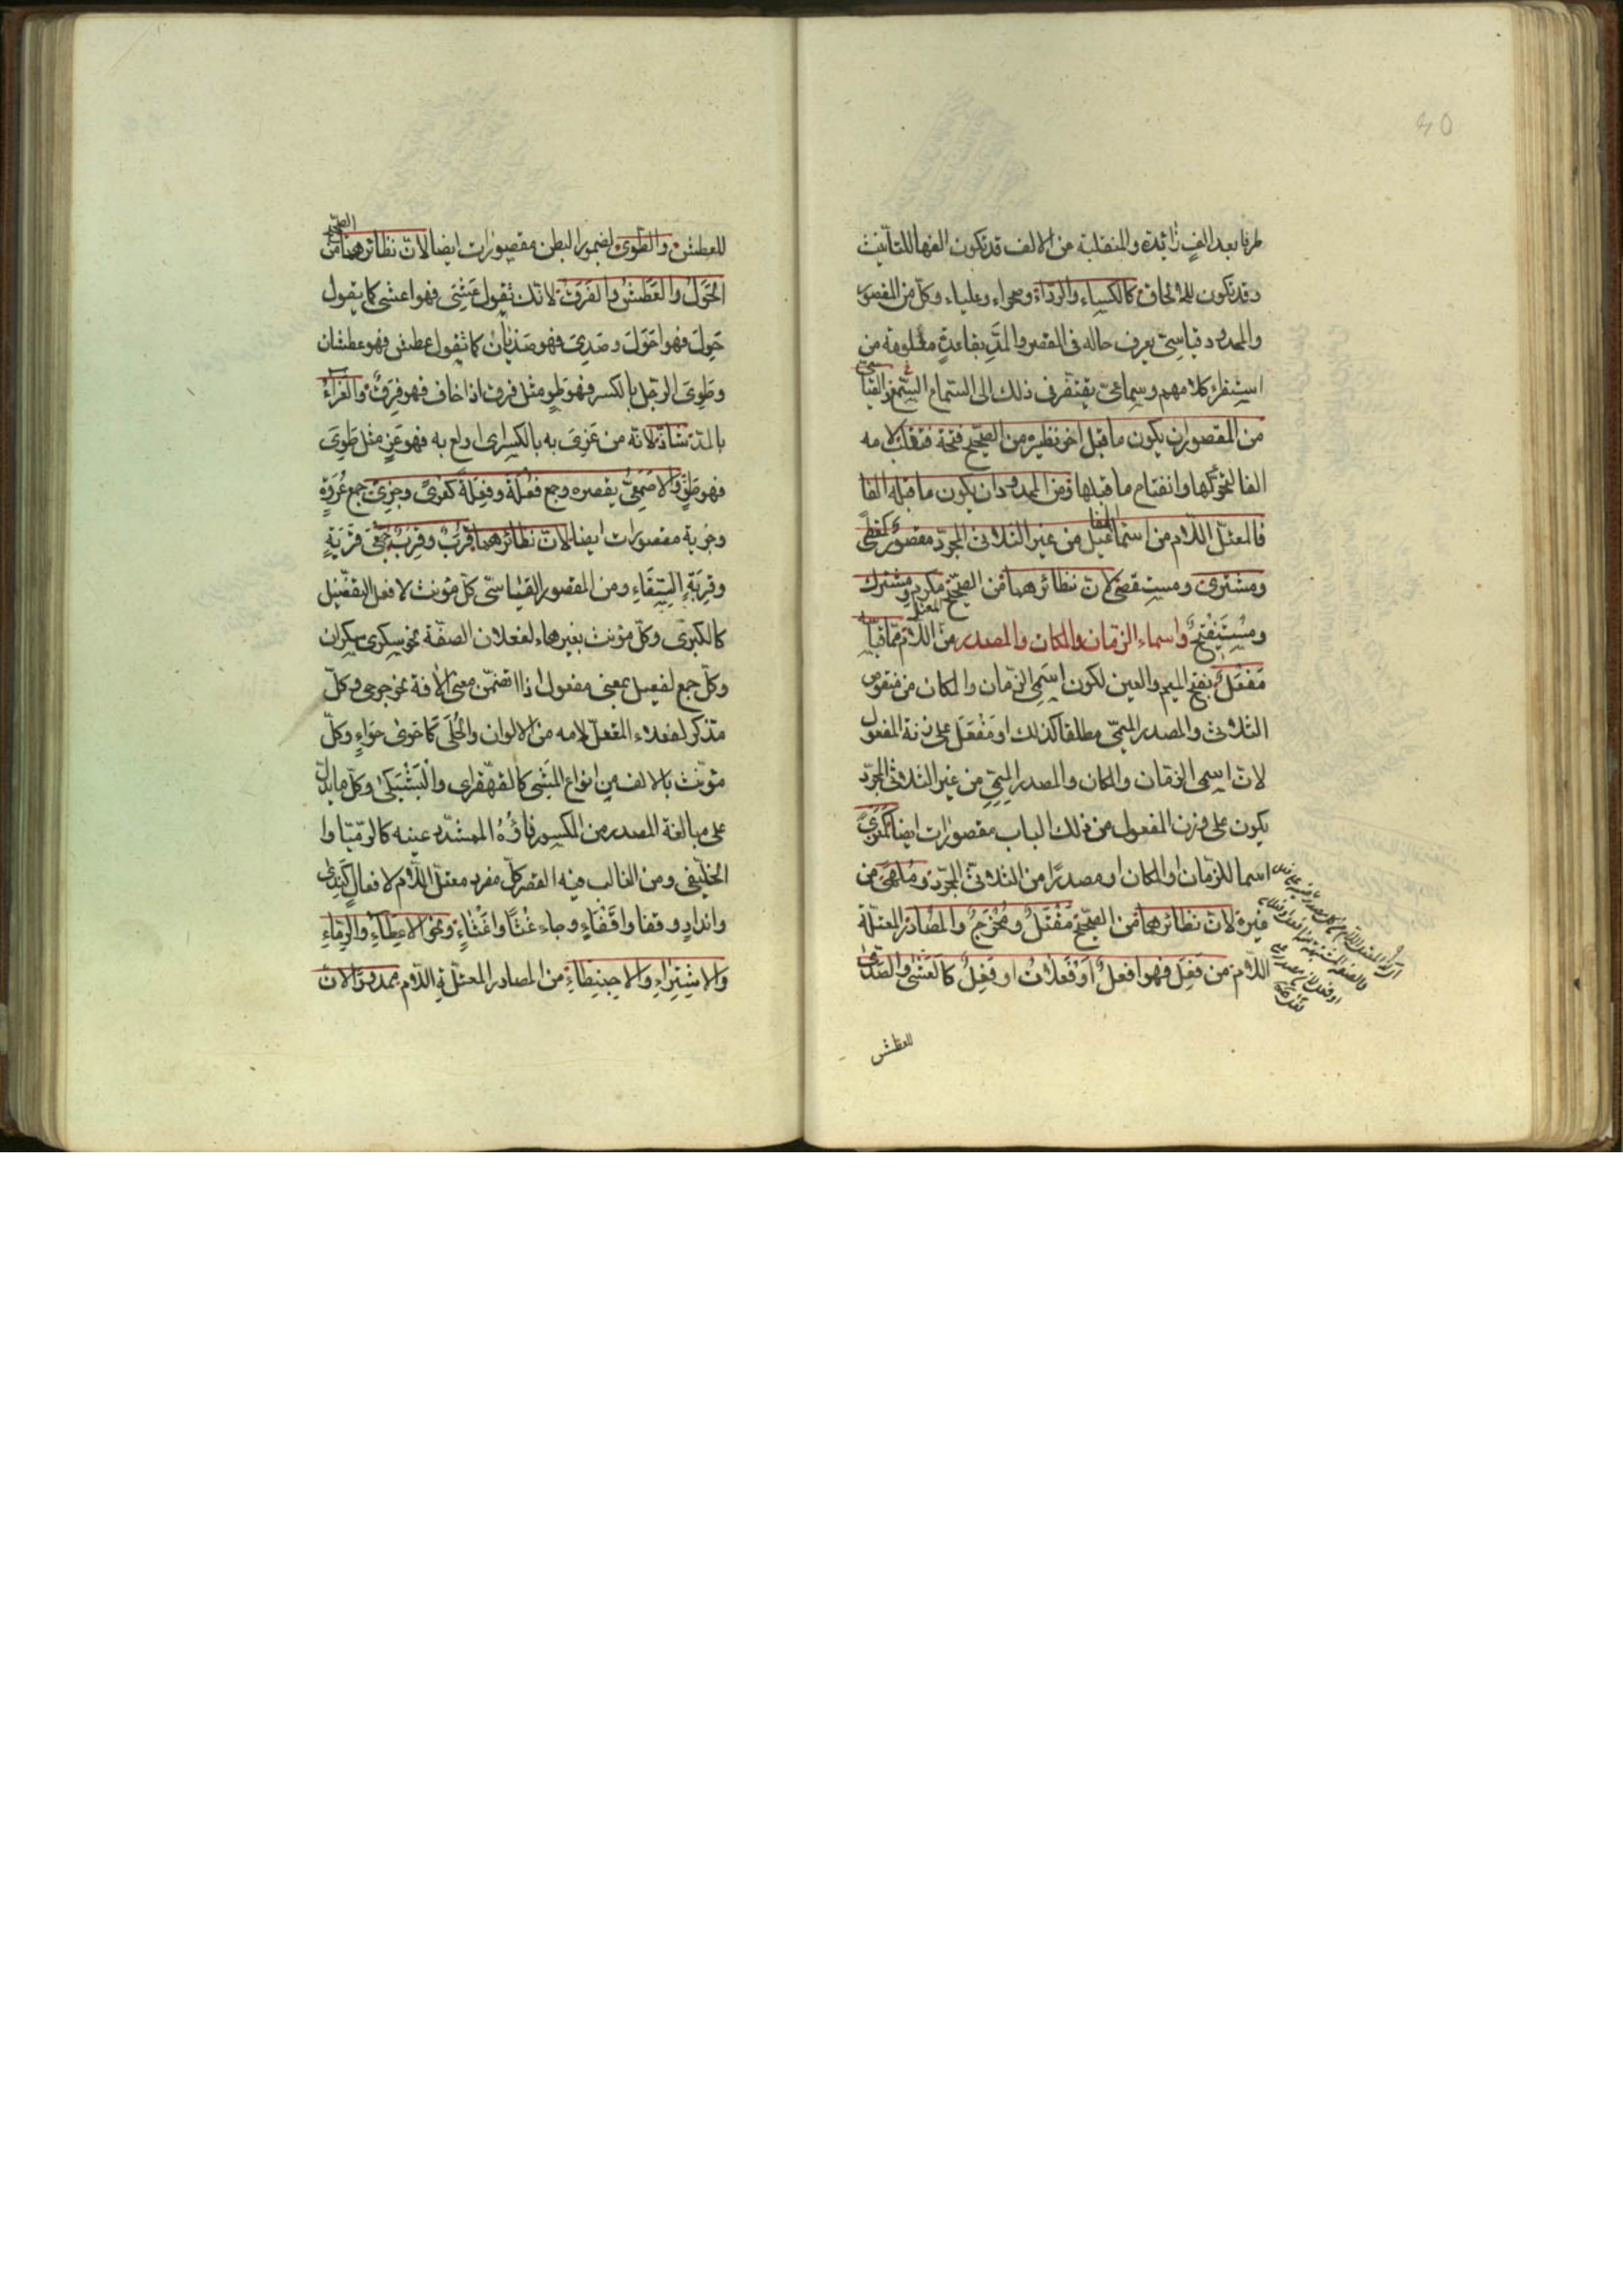 40
طرفا بعد الف زائدة والمنقلبة من الالف قد تكون الفها للتأنيث
وقد تكون للالحاق كالكساء والرداء وصحراء وعلباء وكل من المقصور
والممدود قياسىّ يعرف حاله فى القصر والمدّ بقاعدة معلومة من
استقراء كلامهم وسماعىّ يفتقر فى ذلك الى السماع السمع فالقياسىّ
من المقصور ان يكون ما قبل اخر نظيره من الصحيح فتحة فتقلب لامه
الفا لتحركها وانفتاح ما قبلها ومن الممدود ان يكون ما قبله الفا
فالمعتل اللام من اسماء المفاعيل من غير الثلاثى المجرّد مقصور كمعطى
ومشترى ومستقصى لانّ نظائرهما من الصحيح مكرم ومشترك
ومستفتح واسماء الزمان والمكان والمصدر من المعتل اللام ممّا قياسه
مَفْعَل بفتح الميم والعين لكون اسمى الزمان والمكان من منقوص
الثلاثى والمصدر الميمىّ مطلقا كذلك او مُفْعَل على زنة المفعول
لانّ اسمى الزمان والمكان والمصدر الميمىّ من غير الثلاثى المجرّد
يكون على وزن المفعول من ذلك الباب مقصورات ايضا كمغزى
اسما للزمان او المكان او مصدرا من الثلاثىّ المجرّد وملهى من
غيره لانّ نظائرهما من الصحيح مَقْتَل ومُخْرَج والمصادر المعتلّة
اللام من فَعِلَ فهو افعل او فعلان او فَعِل كالعشى والصدى
للعطش
للعطش والطوى لضمور البطن مقصورات ايضا لانّ نظائرهما من الصحيح
الحَوَل والعَطَش والفَرَق لانّك تقول عَشِىَ فهو اعشى كما يقول
حَوِلَ فهو احْوَل وصَدِىَ فهو صَدْيان كما تقول عطش فهو عطشان
وطَوِىَ الرجل بالكسر فهو طوٍ مثل فرق اذا خاف فهو فَرِقٌ والغراء
بالمدّ شاذّ لانّه من غَرِىَ به بالكسر اى اولع به فهو غرٍ مثل طوى
فهو طوٍ والاصمعىّ يقصره وجمع فُعْلة وفِعْلة كعُرًى وجِزًى جمع عُرْوَةٍ
وجزية مقصورات ايضا لانّ نظائرهما قُرَبٌ وقِرَبٌ جمعى قُرْبَةٍ
وقِرْبَةِ السِّقَاءِ ومن المقصور القياسىّ كلّ مؤنث لافعل التفضيل
كالكبرى وكلّ مؤنث بغير هاء لفعلان الصفة نحو سكرى سكران
وكلّ جمع لفعيل بمعنى مفعول اذا تضمّن معنى الآفة نحو جرحى وكلّ
مذكر لفعلاء المعتلّ لامه من الالوان والحُلَى كاحوى حوّاء وكلّ
مؤنث بالالف من انواع المشى كالقهقرى والبَشَكى وكلّ ما يدلّ
على مبالغة المصدر من المكسور فاؤه المشدّد عينه كالرمّيّا وا
الخلّيفى ومن الغالب فيه القصر كلّ مفرد معتلّ اللام لافعال كندى
وانداء وقفا واقفاء وجاء غُثاء واغثاء ونحو الاعطاء والرماء
والاشتراء والاحبنطاء من المصادر المعتلّة اللام ممدود لانّ